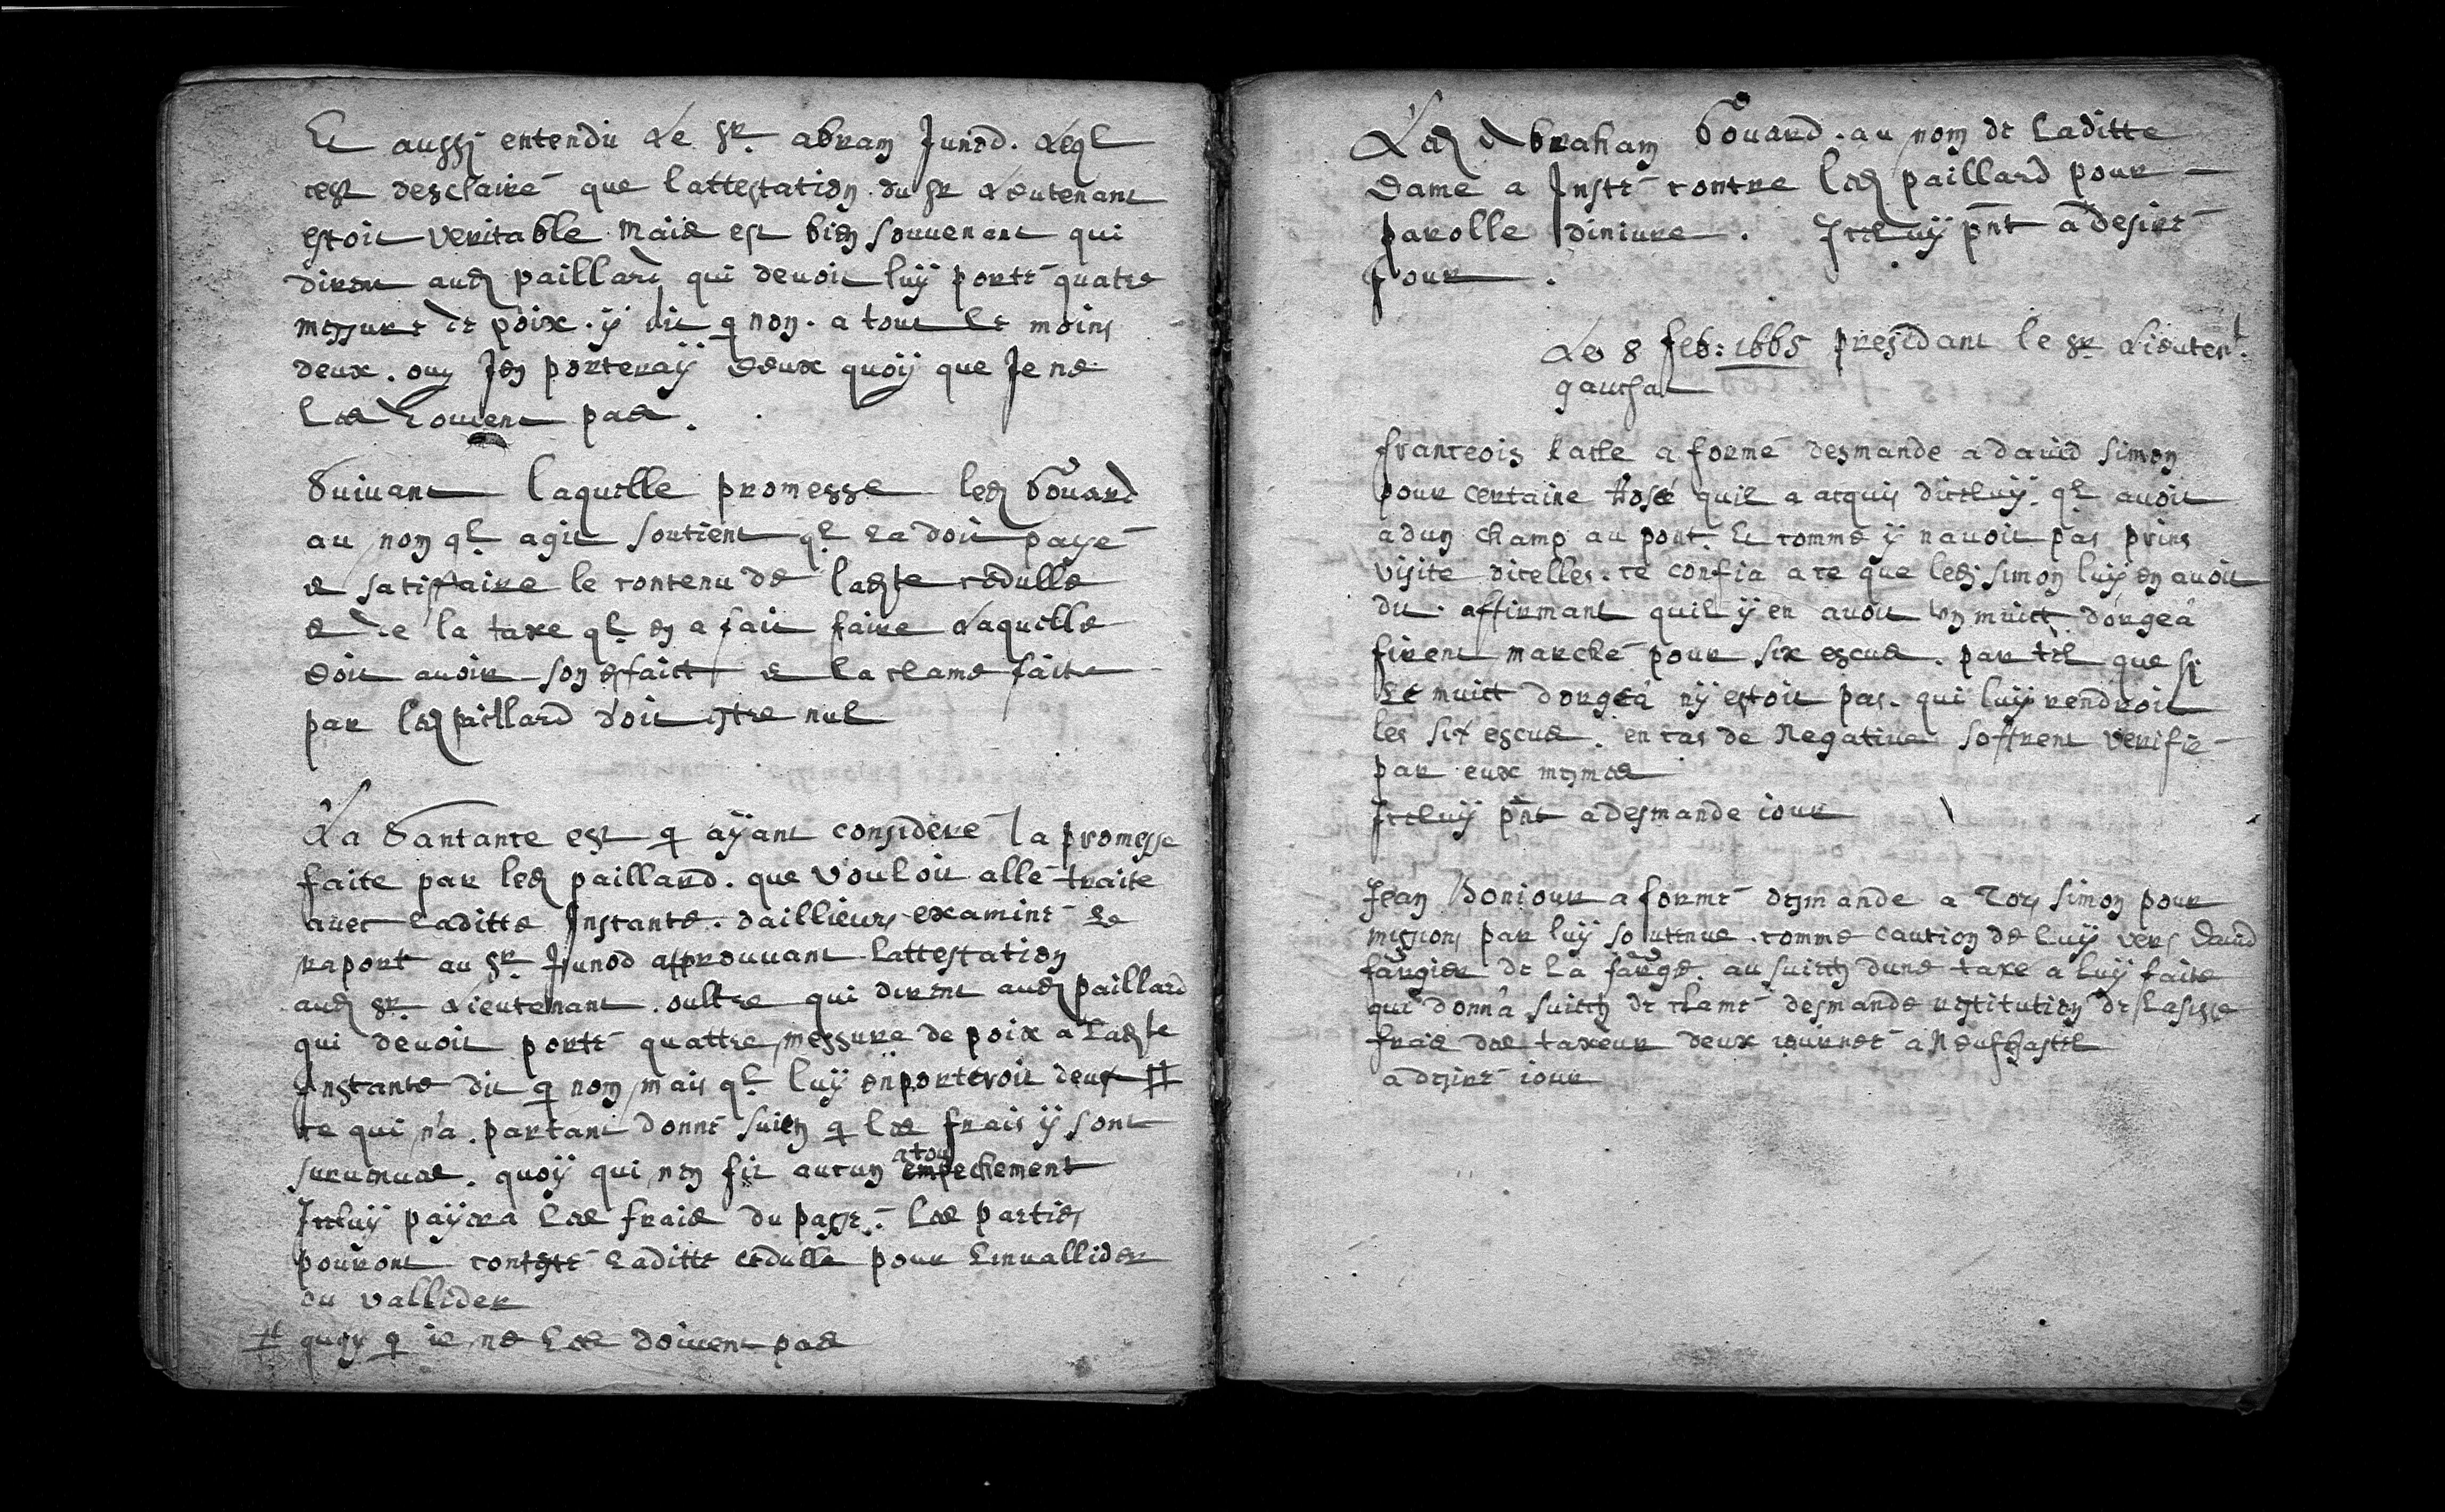 Et aussy entendu Le Sr. abram Junod. Leql
cest desclairé que lattestation du Sr Lieutenant
estoit veritable mais est bien souuenant qui
dirent aud paillard qui deuoit luÿ porté quatre
messure de poix. ÿ dit q non. a tout le moins
deux. ouy Jen porteraÿ deux quoÿ que Je ne
les douient pas.
Suiuant laquelle promesse led bouard
au nom ql agit soutient ql la doit payé
& satisfaire le contenu de ladte cedulle
& de la taxe ql en a fait faire Laquelle
doit auoir son effaict & la clame faite
par led paillard doit estre nul
La Santance est q aÿant consideré la promesse
faite par led paillard. que vouloit allé traite
auec laditte Instante. dailleurs examiné le
raport au Sr. Junod approuuant lattestation
aud Sr. Lieutenant. oultre qui dirent aud paillard
qui deuoit porté quattre messure de poix a ladte
Instante dit q non mais ql luÿ en porteroit deux #
ce qui n'a. partant donné suitt q les frais ÿ sont
suruenues. quoÿ qui nen fit aucun atou empechement
Jceluÿ paÿera les frais du passé. les parties
pouront contesté laditte cedulle pour linuallider
ou vallider
# quoy q ie ne les doiuent pas
Led Abraham bouard. au nom de laditte
Dame a Insté contre led paillard pour
parolle diniure. Jceluÿ pnt a desiré
Jour.
Le 8 feb: 1665 presidant le Sr Lieutent.
gauchat
francois l'acle a formé desmande a dauid simon
pour certaine chose quil a acquis diceluÿ. ql auoit
a dun champ au pont. Et comme ÿ nauoit pas prins
visite dicelles. ce confia a ce que led simon luÿ en auoit
dit. affirmant quil ÿ en auoit un muict d'orgeá
firent marché pour six escus. par tel que si
le muict dorgeá nÿ estoit pas. qui luÿ rendroit
les six escus. en cas de Negatiue soffrent verifié
par eux mesmes
Jceluÿ pnt a desmande iour
Jean Boniour a formé desmande a Tou simon pour
missions par luÿ souttenue. comme caution de luÿ vers Dauid
fargier de la farge. au suictt dune taxe a luÿ faite
qui donna suictt de clamé desmande restitution de lasisse
frais des taxeur deux iournee a Neufchastel
a desiré iour